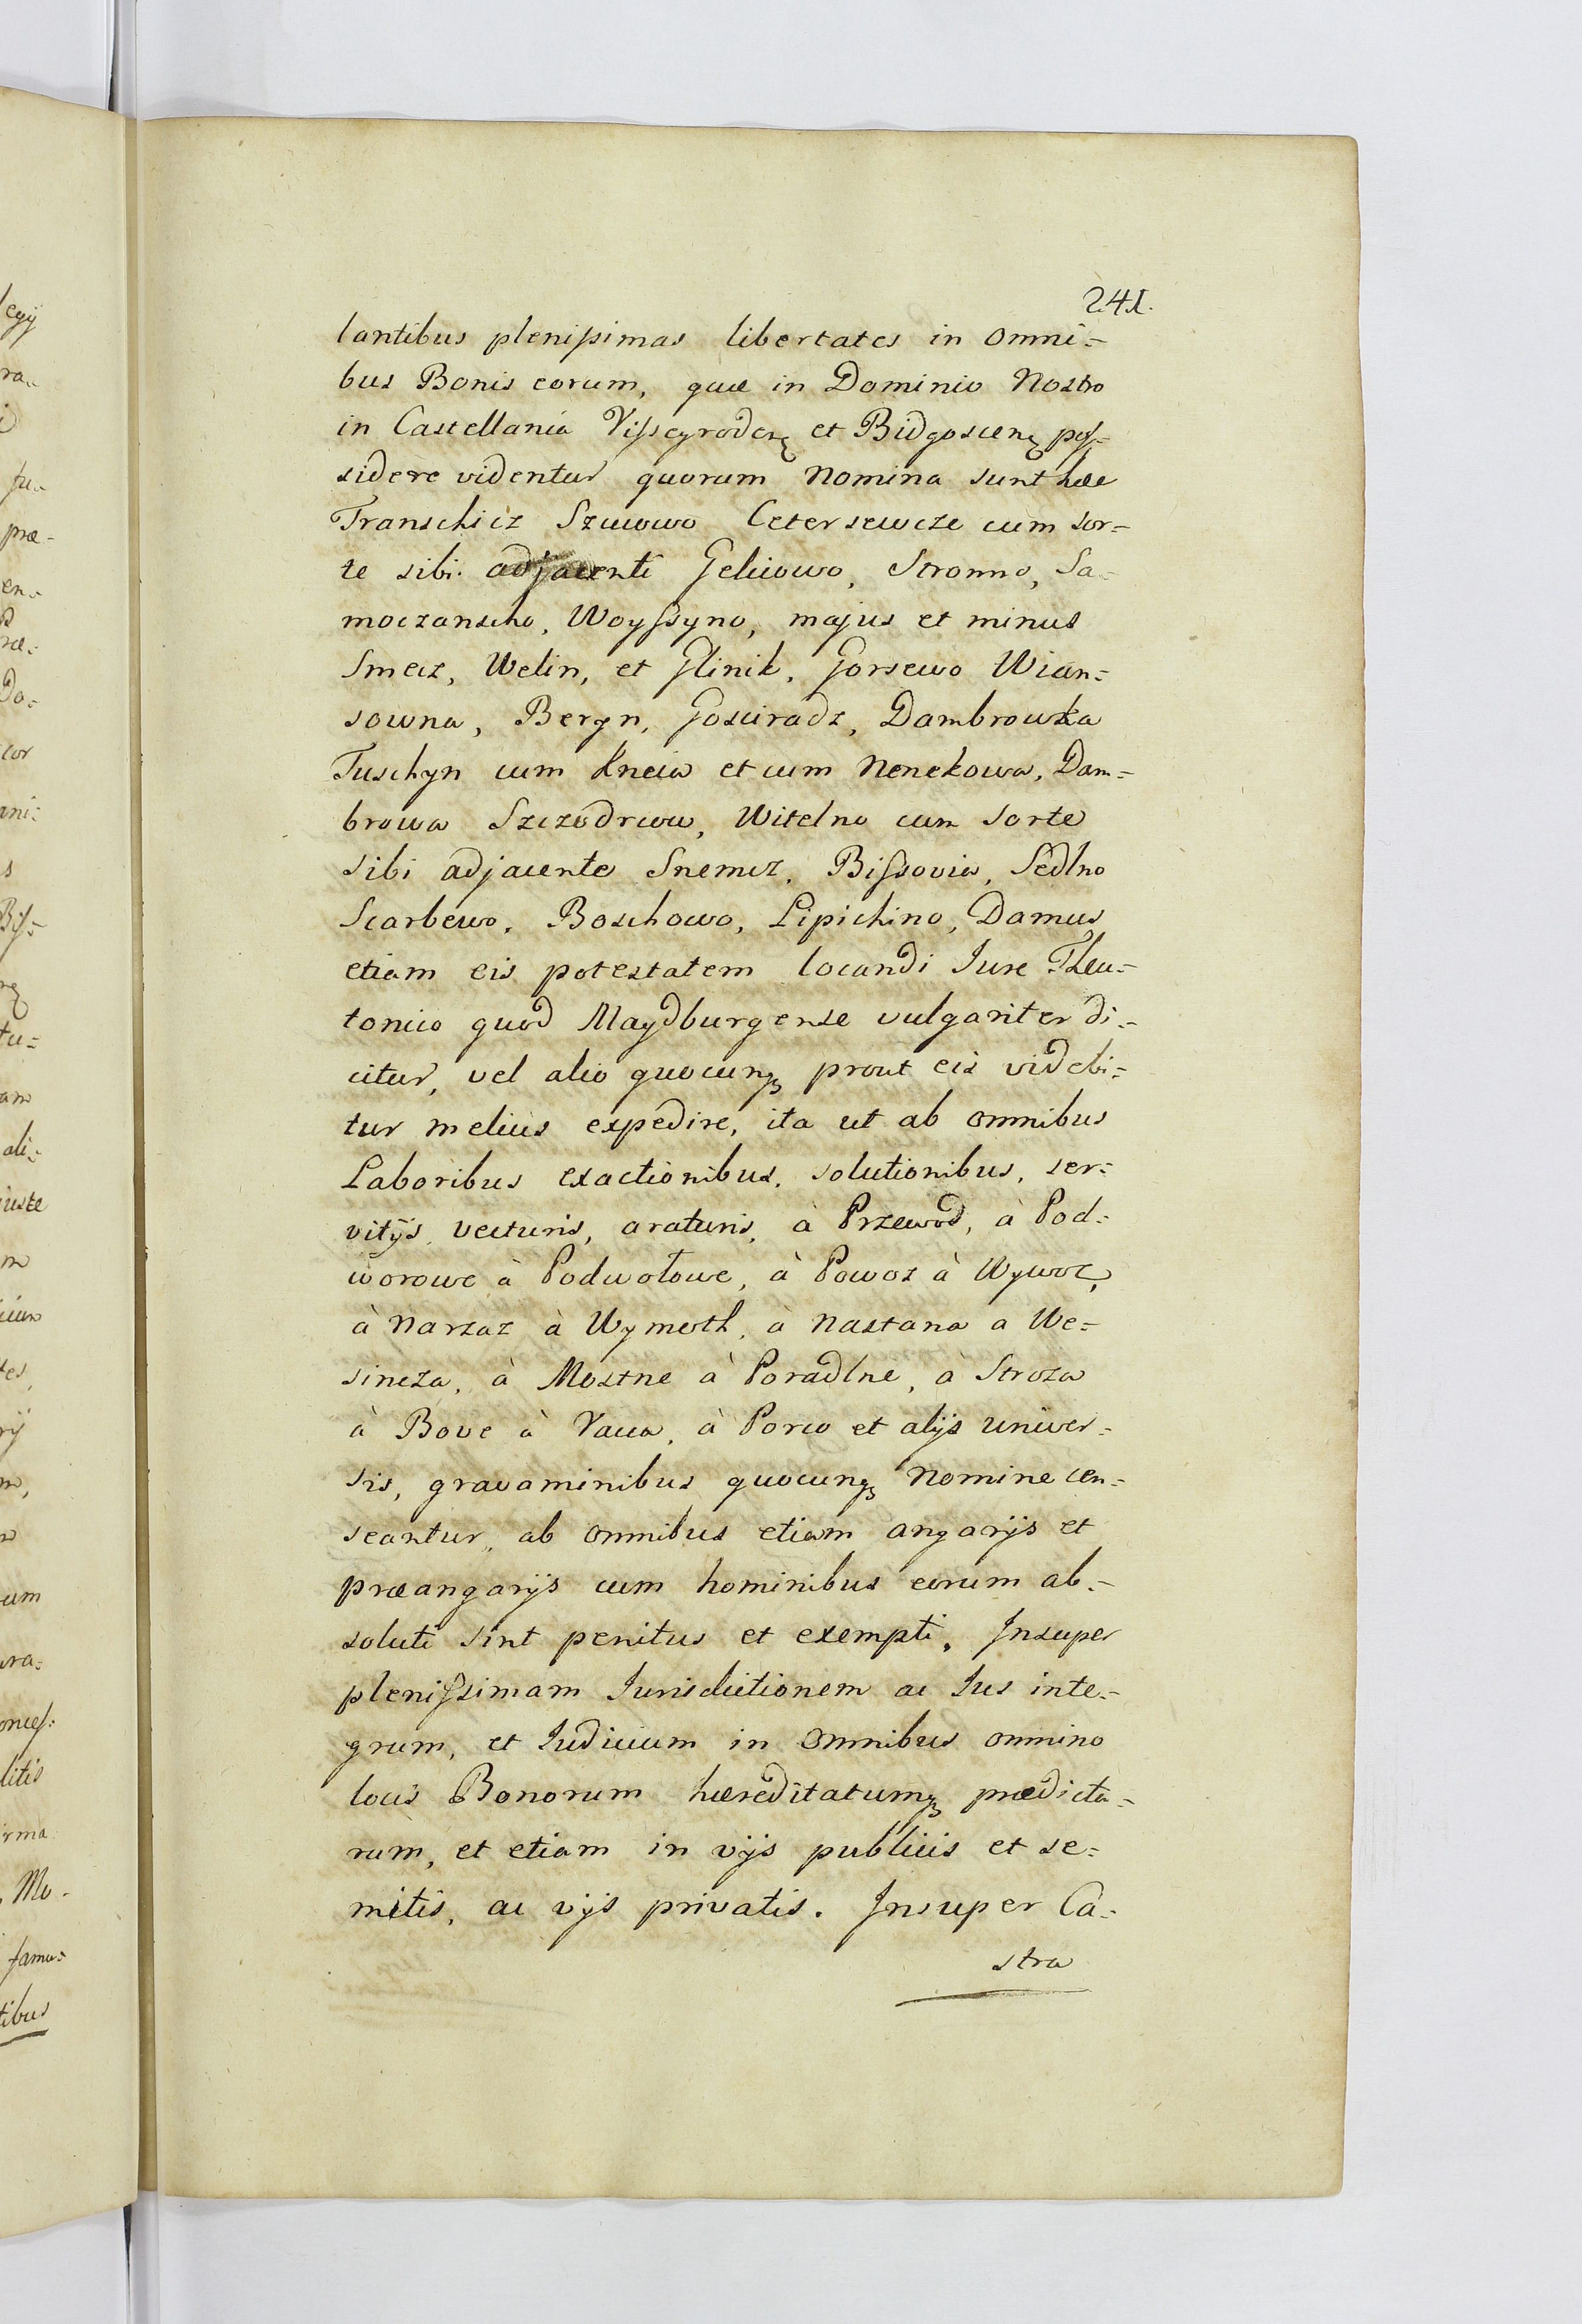 241.
lantibus plenissimas libertates in omni=
bus Bonis eorum, quæ in Dominio Nostro
in Castellania Vissegroden. et Bidgoscien. pos=
sidere videntur quorum Nomina sunt hæc
Transchicz Szucowo Ceterseweze cum sor=
te sibi adjacenti Gelicowo, Stronno, Sa=
moczanscho, Woyssyno, majus et minus
Smecz, Welin, et Glinik, Gorsewo Wian=
sowna, Bergn, Gosciradz, Dambrowka
Tuschyn cum Kneia et cum Nenekowa, Dam=
browa Szczodrcow, Witelno cum sorte
sibi adjacente Snemcz, Bissovia, Sedlno
Scarbewo, Boschowo, Lipichino, Damus
etiam eis potestatem locandi Iure Theu=
tonico quod Maydburgense vulgariter di=
citur, vel alio quocunq3 prout eis videbi=
tur melius expedire, ita ut ab omnibus
Laboribus exactionibus, solutionibus, ser=
vitijs, vecturis, araturis, à Przewod, à Pod=
worowe à Podwołowe, à Powoz à Wywoz,
à Narzaz à Wymeth, à Nastana a We=
sincza, à Mostne à Poradlne, à Stroza
à Bove à Vacca, à Porco et alijs univer=
sis, gravaminibus quocunq3 Nomine cen=
seantur, ab omnibus etiam angarijs et
præangarijs cum hominibus eorum ab=
soluti sint penitus et exempti. Insuper
plenissimam Iurisdictionem ac Ius inte=
grum, et Iudicium in omnibus omnino
locis Bonorum hæreditatumq3 prædicta=
rum, et etiam in vijs publicis et se=
mitis, ac vijs privatis. Insuper Ca=
stra